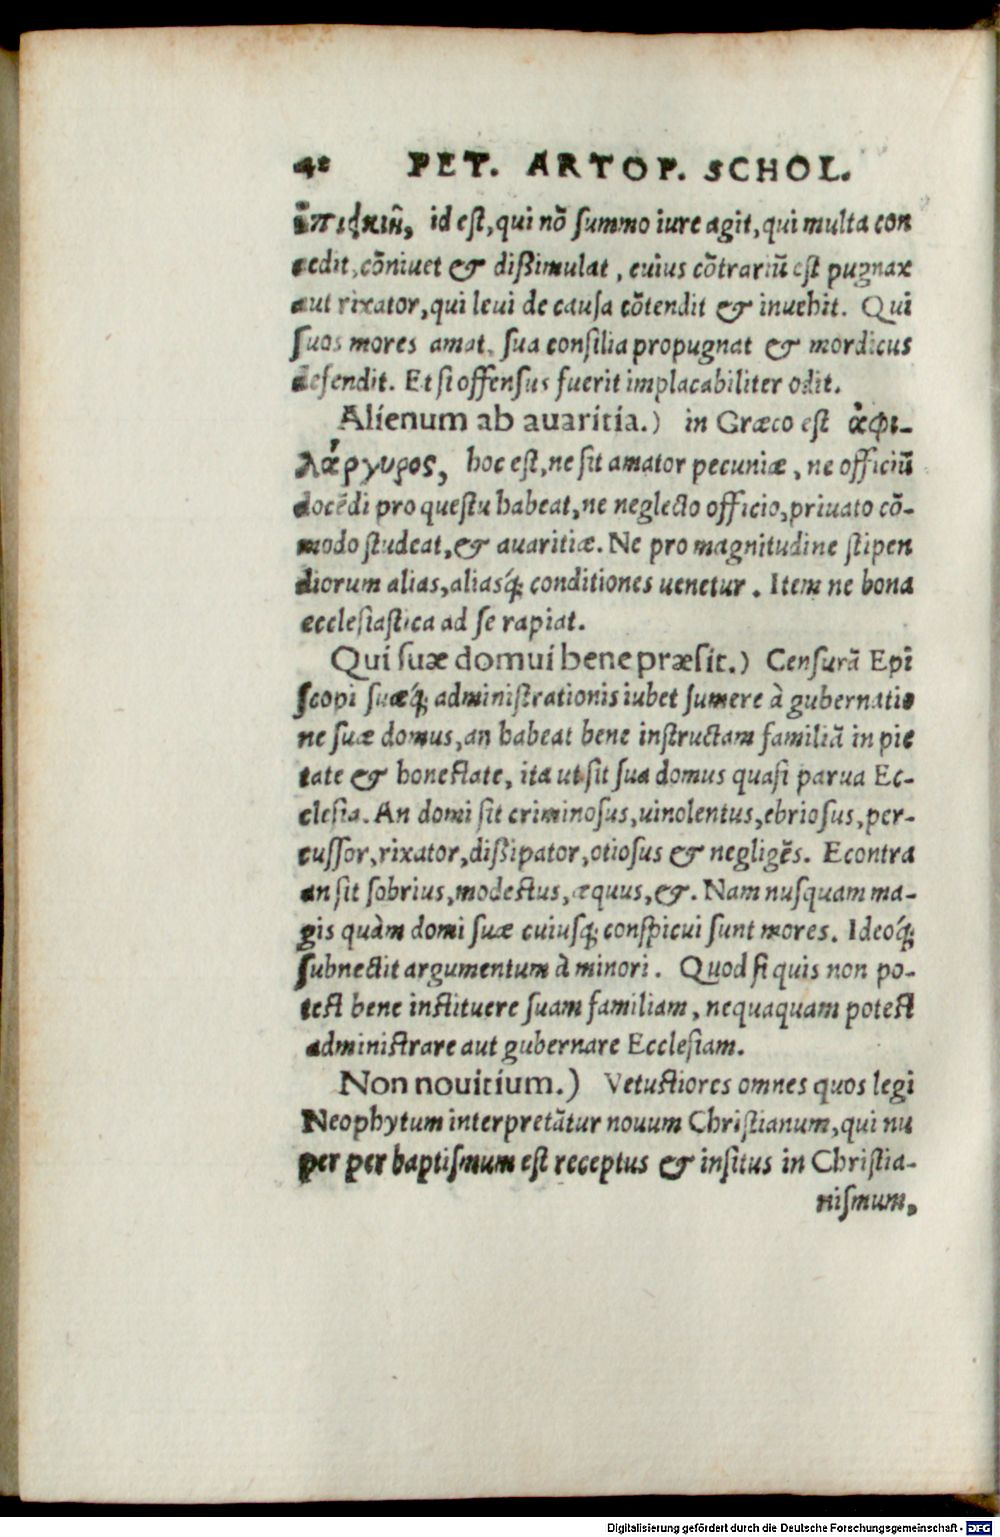 42 PET. ARTOP. SCHOL.
ἐπιεικῆ, id eſt, qui nõ ſummo iure agit, qui multa con
cedit, cõniuet & dißimulat, cuius cõtrariũ eſt pugnax
aut rixator, qui leui de cauſa cõtendit & inuehit. Qui
ſuos mores amat, ſua conſilia propugnat & mordicus
defendit. Et ſi offenſus fuerit implacabiliter odit.
Alienum ab auaritia.) in Græco eſt ἀφι-
λάργυρος, hoc eſt, ne ſit amator pecuniæ, ne officiũ
docẽdi pro queſtu habeat, ne neglecto officio, priuato cõ-
modo ſtudeat, & auaritiæ. Ne pro magnitudine ſtipen
diorum alias, aliasq́; conditiones uenetur. Item ne bona
eccleſiaſtica ad ſe rapiat.
Qui ſuæ domui bene præſit.) Cenſurã Epi
ſcopi ſuæq́; adminiſtrationis iubet ſumere à gubernatio
ne ſuæ domus, an habeat bene inſtructam familiã in pie
tate & honeſtate, ita ut ſit ſua domus quaſi parua Ec-
cleſia. An domi ſit criminoſus, uinolentus, ebrioſus, per-
cuſſor, rixator, dißipator, otioſus & negligẽs. Econtra
an ſit ſobrius, modeſtus, æquus, &. Nam nuſquam ma-
gis quàm domi ſuæ cuiuſq; conſpicui ſunt mores. Ideoq́;
ſubnectit argumentum à minori. Quod ſi quis non po-
teſt bene inſtituere ſuam familiam, nequaquam poteſt
adminiſtrare aut gubernare Eccleſiam.
Non nouitium.) Vetuſtiores omnes quos legi
Neophytum interpretãtur nouum Chriſtianum, qui nu
per per baptiſmum eſt receptus & inſitus in Chriſtia-
niſmum,
Digitalisierung gefördert durch die Deutsche Forschungsgemeinschaft - DFG